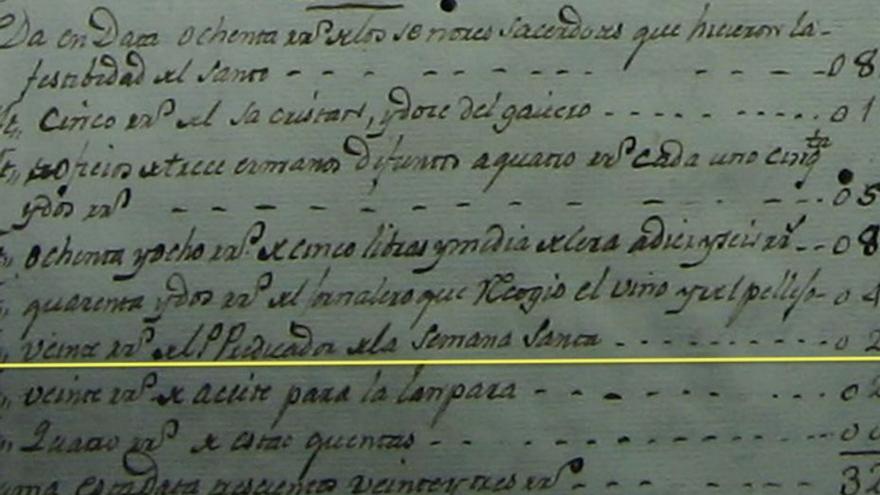 Da en Data ochenta rrs de los senores sacerdotes que hicieron la - 
festibidad del santo - - - - - - - - - - 08
cinco rrs del sacristan, y dose del gaitero - - - - - - - - 01
oficios de trece ermanos difuntos a quatro rrs cada uno cinqta
y dos rrs - - - - - - - - - - - - 05
ochenta y ocho rrs de cinco libras y media de sera a diez y seis rrs - - 08
quarenta y dos rrs del jornalero que Recogio el vino y del pellejo - 04
veinte rrs del Pe Predicador de la Semana Santa - - - - - - - - - 02
veinte rrs de aceite para la lanpara - - - - - - - - 02
Quatro rrs de estas quentas - - - - - - - - - 00
uma esta data trescientos veinte y tres rrs - - - - - - 32